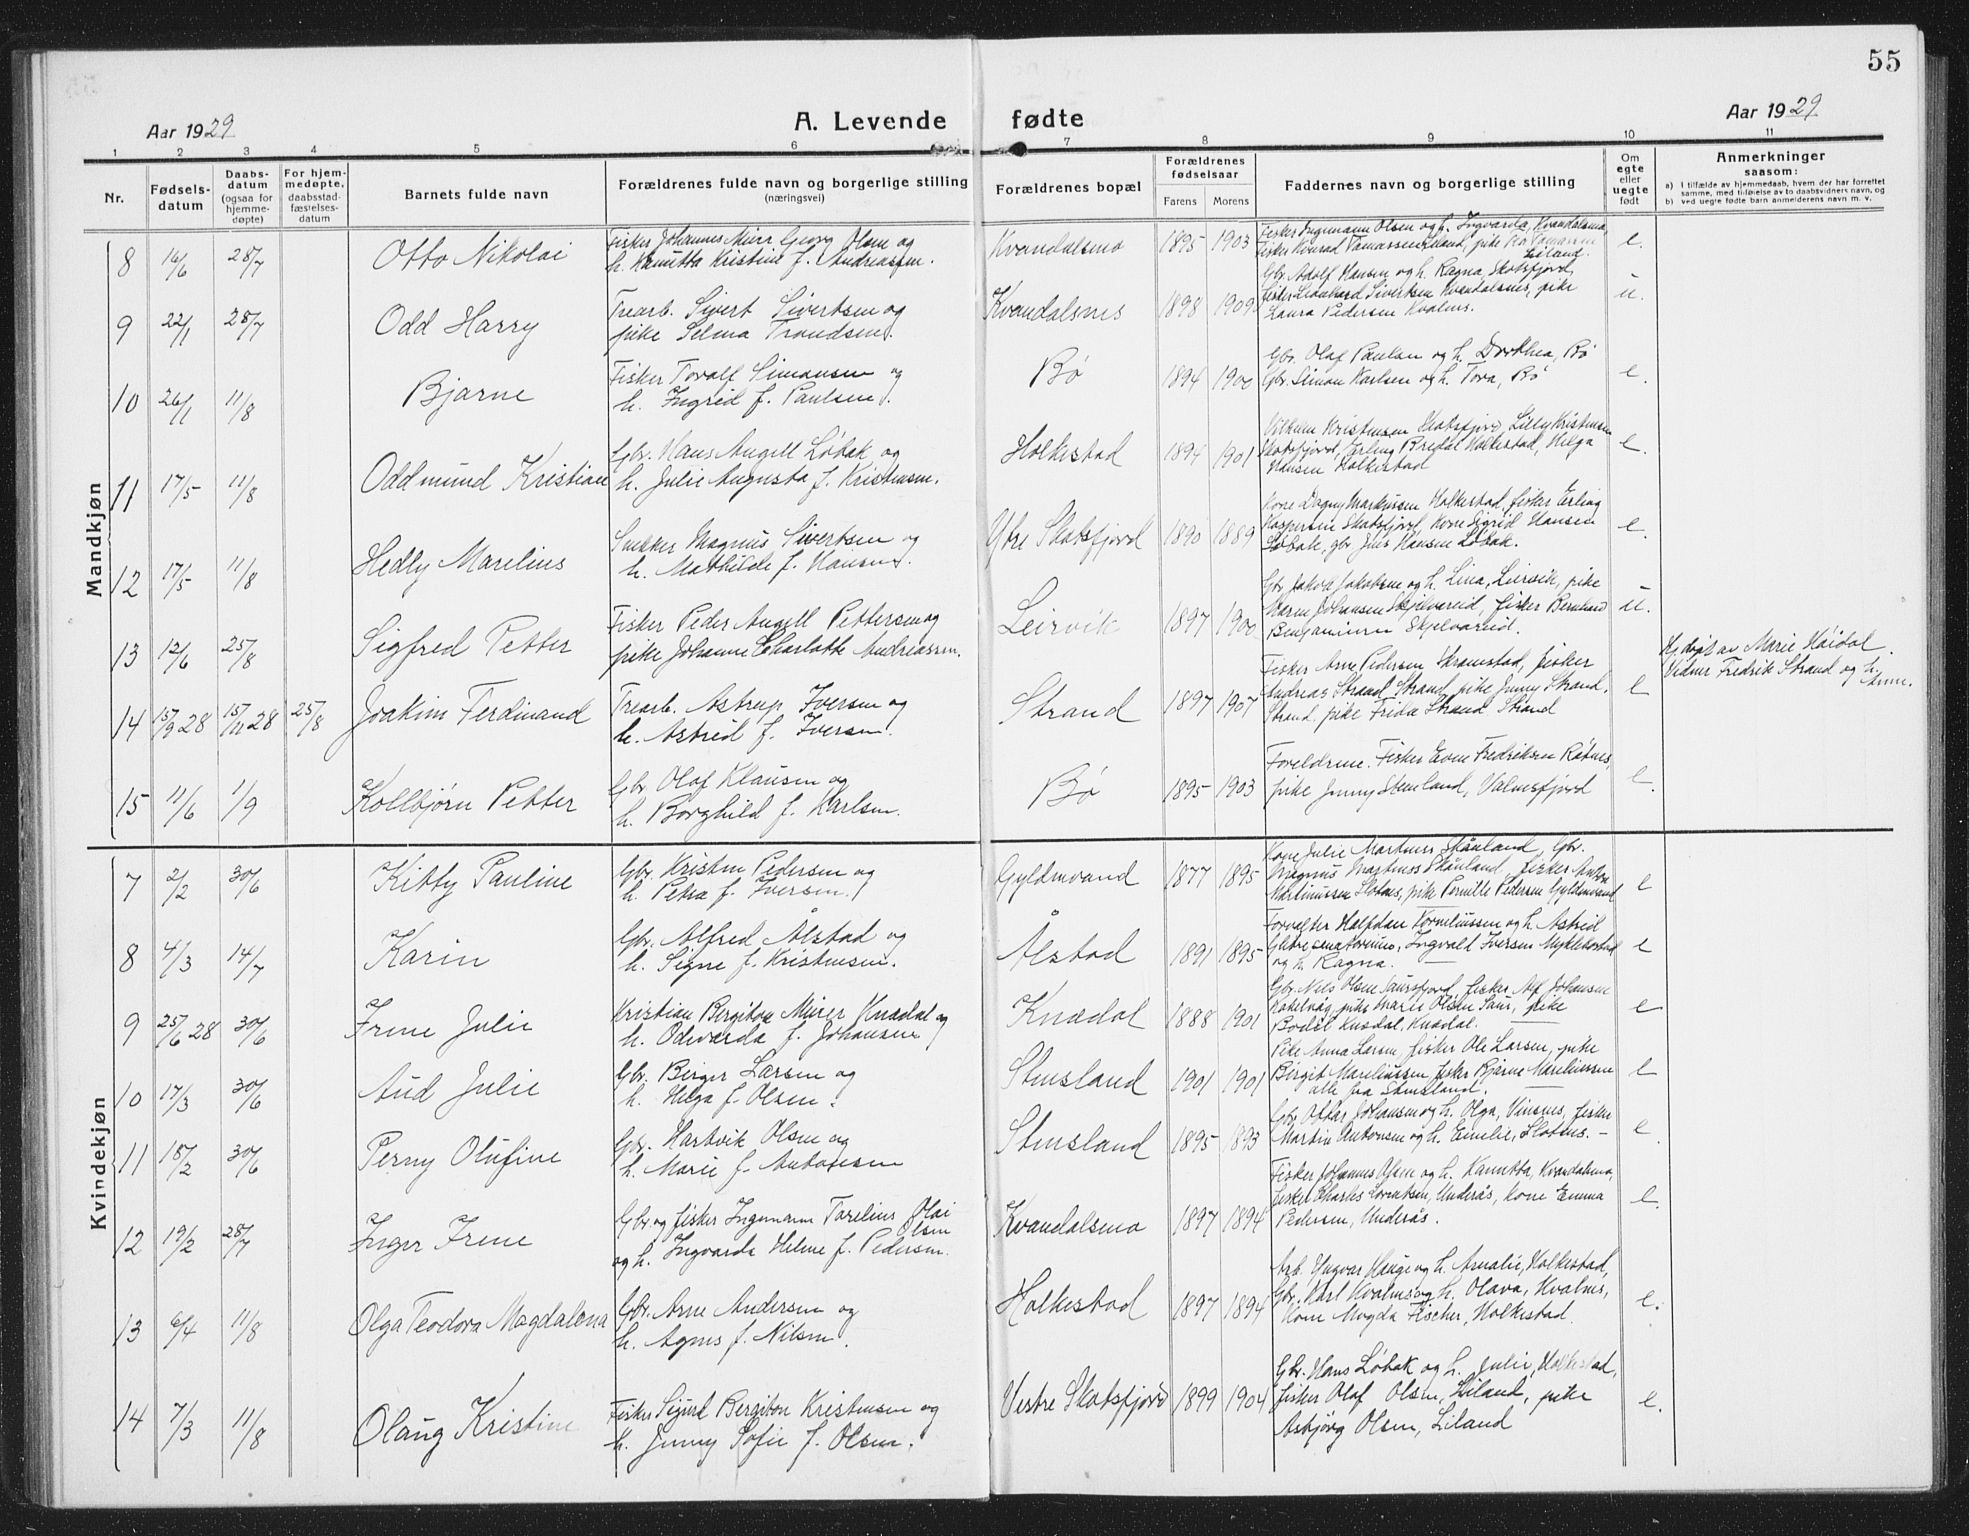 55
Aar 1929
A. Levende fødte
Aar 1929
1 2 3 4 5 6 7 8 9 10 11
Nr.
Fødsels-
datum
Daabs-
datum
(ogsaa for
hjemme-
døpte)
For hjem-
medøpte,
daabsstad-
fæstelses-
datum
Barnets fulde navn
Forældrenes fulde navn og borgerlige stilling
(næringsvei)
Forældrenes bopæl
Forældrenes
fødselsaar
Farens Morens
Faddernes navn og borgerlige stilling
Om
egte
eller
uegte
født
Anmerkninger
saasom:
a) I tilfælde av hjemmedaab, hvem der har forrettet
samme, med tilføielse av to daabsvidners navn, og
b) ved uegte fødte barn anmelderens navn m. v.
Mandkjøn
8 16/6 28/7 Otto Nikolai
Fisker Johannes Georg Olsen og
h. Kanutta Kristine f. Andreassen.
Kvandalsmo 1895 1903
Fisker Ingemann Olsen og h. Ingvarda, Kvandalsmo,
Fisker Konrad Tomassen Liland, pike Tomassen
Liland.
e.
9 22/1 28/7 Odd Harry
Trearb. Sivert Sivertsen og
pike Selma Trondsen.
Kvandalsnes 1898 1909
Gbr. Adolf Hansen og h. Ragna, Skotsfjord,
fisker Leonhard Sivertsen Kvandalsnes, pike
Laura Pedersen Kvalnes.
u.
10 26/1 11/8 Bjarne
Fisker Toralf Simonsen og
h. Ingrid f. Paulsen.
Bø 1894 1900
Gbr. Olaf Paulsen og h. Dorthea, Bø
Gbr. Simon Karlsen og h. Tora, Bø
e.
11 17/5 11/8 Oddmund Kristian
Gbr. Hans Angell Løbak og
h. Julie Augusta f. Kristensen.
Holkestad 1894 1901
Kristensen Skotsfjord, Lilly Kristensen
Skotsfjord, Erling Bredal Holkestad, Helga
Hansen Holkestad
e.
12 17/5 11/8 Hedly Marelius
Snekker Magnus Sivertsen og
h. Mathilde f. Hansen.
Ytre Skotsfjord 1890 1889
Kone Dagny Markussen Holkestad, fisker Erling
Kaspersen Skotsfjord, kone Sigrid Hansen
Løbak, gbr. Jens Hansen Løbak.
e.
13 12/6 25/8 Sigfred Petter
Fisker Peder Angell Pettersen og
pike Johanne Charlotte Andreassen.
Leirvik 1897 1900
Gbr. Jakob Jakobsen og h. Lina, Leirvik, pike
Maren Johansen Skjelvareid, fisker Bernhard
Benjaminsen Skjelvareid.
u.
14 15/9 28 15/11 28 25/8 Joakim Ferdinand
Trearb. Astrup Iversen og
h. Astrid f. Iversen.
Strand 1897 1907
Fisker Arne Pedersen Skramstad, fisker
Andreas Strand Strand, pike Jenny Strand,
Strand, pike Frida Strand Strand
e
Hj. døpt av Marie Høidal.
Vidner Fredrik Strand og h.
Anne.
15 11/6 1/9 Kolbjørn Petter
Gbr. Olaf Klausen og
h. Borghild f. Karlsen.
Bø 1895 1903
Foreldrene. Fisker Even Fredriksen Røtnes,
pike Jenny Stenland, Valnesfjord
e.
Kvindekjøn
7 2/2 30/6 Kitty Pauline
Gbr. Kristen Pedersen og
h. Petra f. Iversen.
Gyldenvand 1877 1895
Kone Julie Martinus Skånland, Gbr.
Magnus Martinus Skånland, fisker Anton
Martinussen Slotnes, pike Pernille Pedersen Gyldenvand
e
8 4/3 14/7 Karin
Gbr. Alfred Ålstad og
h. Signe f. Kristensen.
Ålstad 1891 1895
Forvalter Halfdan Korneliussen og h. Astrid
Ingvald Iversen Myklebostad
og h. Ragna.
e
9 25/6 28 30/6 Irene Julie
Kristian Bergiton Meier Knædal og
h. Odevarda f. Johansen
Knædal 1888 1901
Gbr. Nils Olsen Saursfjord, fisker Alf Johansen
pike Marie Olsen Saur, pike
Bodil Knædal, Knædal.
e
10 17/3 30/6 Aud Julie
Gbr. Birger Larsen og
h. Helga f. Olsen.
Stensland 1901 1901
Pike Anna Larsen, fisker Ole Larsen, pike
Birgit Mareliussen, fisker Bjarne Mareliussen
alle fra Stensland.
e
11 18/2 30/6 Perny Olufine
Gbr. Hartvik Olsen og
h. Marie f. Antonsen
Stensland 1895 1893
Gbr. Ottar Johansen og h. Olga, Vinsnes, fisker
Martin Antonsen og h. Emelie, Slotnes. –
e.
12 19/2 28/7 Inger Irene
Gbr. og fisker Ingemann Torelius Olai
Olsen
og h. Ingvarda Helene f. Pedersen.
Kvandalsmo 1897 1894
Fisker Johannes Olsen og h. Kanutta, Kvandalsmo,
fisker Charles Lorentsen, Underås, kone Emma
Pedersen, Underås.
e.
13 6/4 11/8 Olga Teodora Magdalena
Gbr. Arne Andersen og
h. Agnes f. Nilsen.
Holkestad 1897 1894
Arb. Yngvar Hauge og h. Amalie, Holkestad,
Gbr. Karl Kvalnes og h. Olava, Kvalnes,
Kone Magda Fischer, Holkestad.
e.
14 7/3 11/8 Olaug Kristine
Fisker Sigurd Bergiton Kristensen og
h. Jenny Sofie f. Olsen.
Vestre Skotsfjord 1899 1904
Gbr. Hans Løbak og h. Julie, Holkestad,
fisker Olaf Olsen, Liland, pike
Asbjørg Olsen, Liland
e.